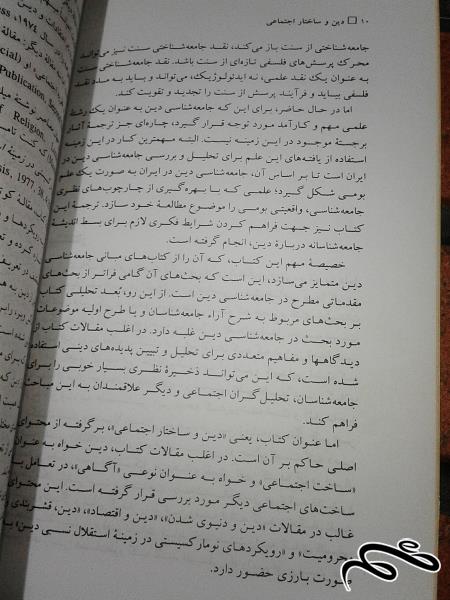 ۱۰ دین و ساختار اجتماعی
جامعه‌شناختی از سنت باز می‌کند، نقد جامعه‌شناختی سنت نیز می‌تواند
محرک پرسش‌های فلسفی تازه‌ای از سنت باشد. نقد جامعه‌شناختی سنت
به عنوان یک نقد علمی، نه ایدئولوژیک، می‌تواند و باید به مدد نقد
فلسفی بیاید و فرآیند پرسش از سنت را تجدید و تقویت کند.
اما در حال حاضر، برای این که جامعه‌شناسی دین به عنوان یک رشتهٔ
علمی مهم و کارآمد مورد توجه قرار گیرد، چاره‌ای جز ترجمهٔ آثار
برجستهٔ موجود در این زمینه نیست. البته مهمترین کار در این زمینه
استفاده از یافته‌های این علم برای تحلیل و بررسی جامعه‌شناسی دین در
ایران است تا بر اساس آن، جامعه‌شناسی دین در ایران به صورت یک علم
بومی شکل گیرد؛ علمی که با بهره‌گیری از چارچوب‌های نظری
جامعه‌شناسی، واقعیتی بومی را موضوع مطالعهٔ خود سازد. ترجمهٔ این
کتاب نیز جهت فراهم کردن شرایط فکری لازم برای بسط اندیشهٔ
جامعه‌شناسانه دربارهٔ دین، انجام گرفته است.
خصیصهٔ مهم این کتاب، که آن را از کتاب‌های مبانی جامعه‌شناسی
دین متمایز می‌سازد، این است که بحث‌های آن گامی فراتر از بحث‌های
مقدماتی مطرح در جامعه‌شناسی دین است. از این رو، بُعد تحلیلی کتاب
بر بحث‌های مربوط به شرح آراء جامعه‌شناسان و یا طرح اولیه موضوعات
مورد بحث در جامعه‌شناسی دین غلبه دارد. در اغلب مقالات کتاب از
دیدگاهها و مفاهیم متعددی برای تحلیل و تبیین پدیده‌های دینی استفاده
شده است، که این می‌تواند ذخیرهٔ نظری بسیار خوبی را برای
جامعه‌شناسان، تحلیل‌گران اجتماعی و دیگر علاقمندان به این مباحث
فراهم کند.
اما عنوان کتاب، یعنی «دین و ساختار اجتماعی»، برگرفته از محتوای
اصلی حاکم بر آن است. در اغلب مقالات کتاب، دین خواه به عنوان
«ساخت اجتماعی» و خواه به عنوان نوعی «آگاهی»، در تعامل با
ساخت‌های اجتماعی دیگر مورد بررسی قرار گرفته است. این محتوای
غالب در مقالات «دین و دنیوی شدن»، «دین و اقتصاد»، «دین، قشربندی و
محرومیت» و «رویکردهای نومارکسیستی در زمینهٔ استقلال نسبی دین» به
صورت بارزی حضور دارد.